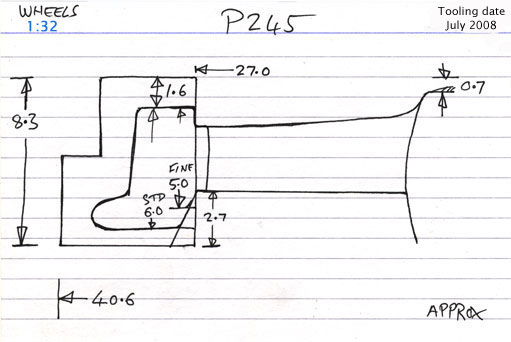 WHEELS
1:32
P245
Tooling date
July 2008
27.0
1.6
0.7
8.3
FINE
5.0
STD
6.0
2.7
40.6
APPROX